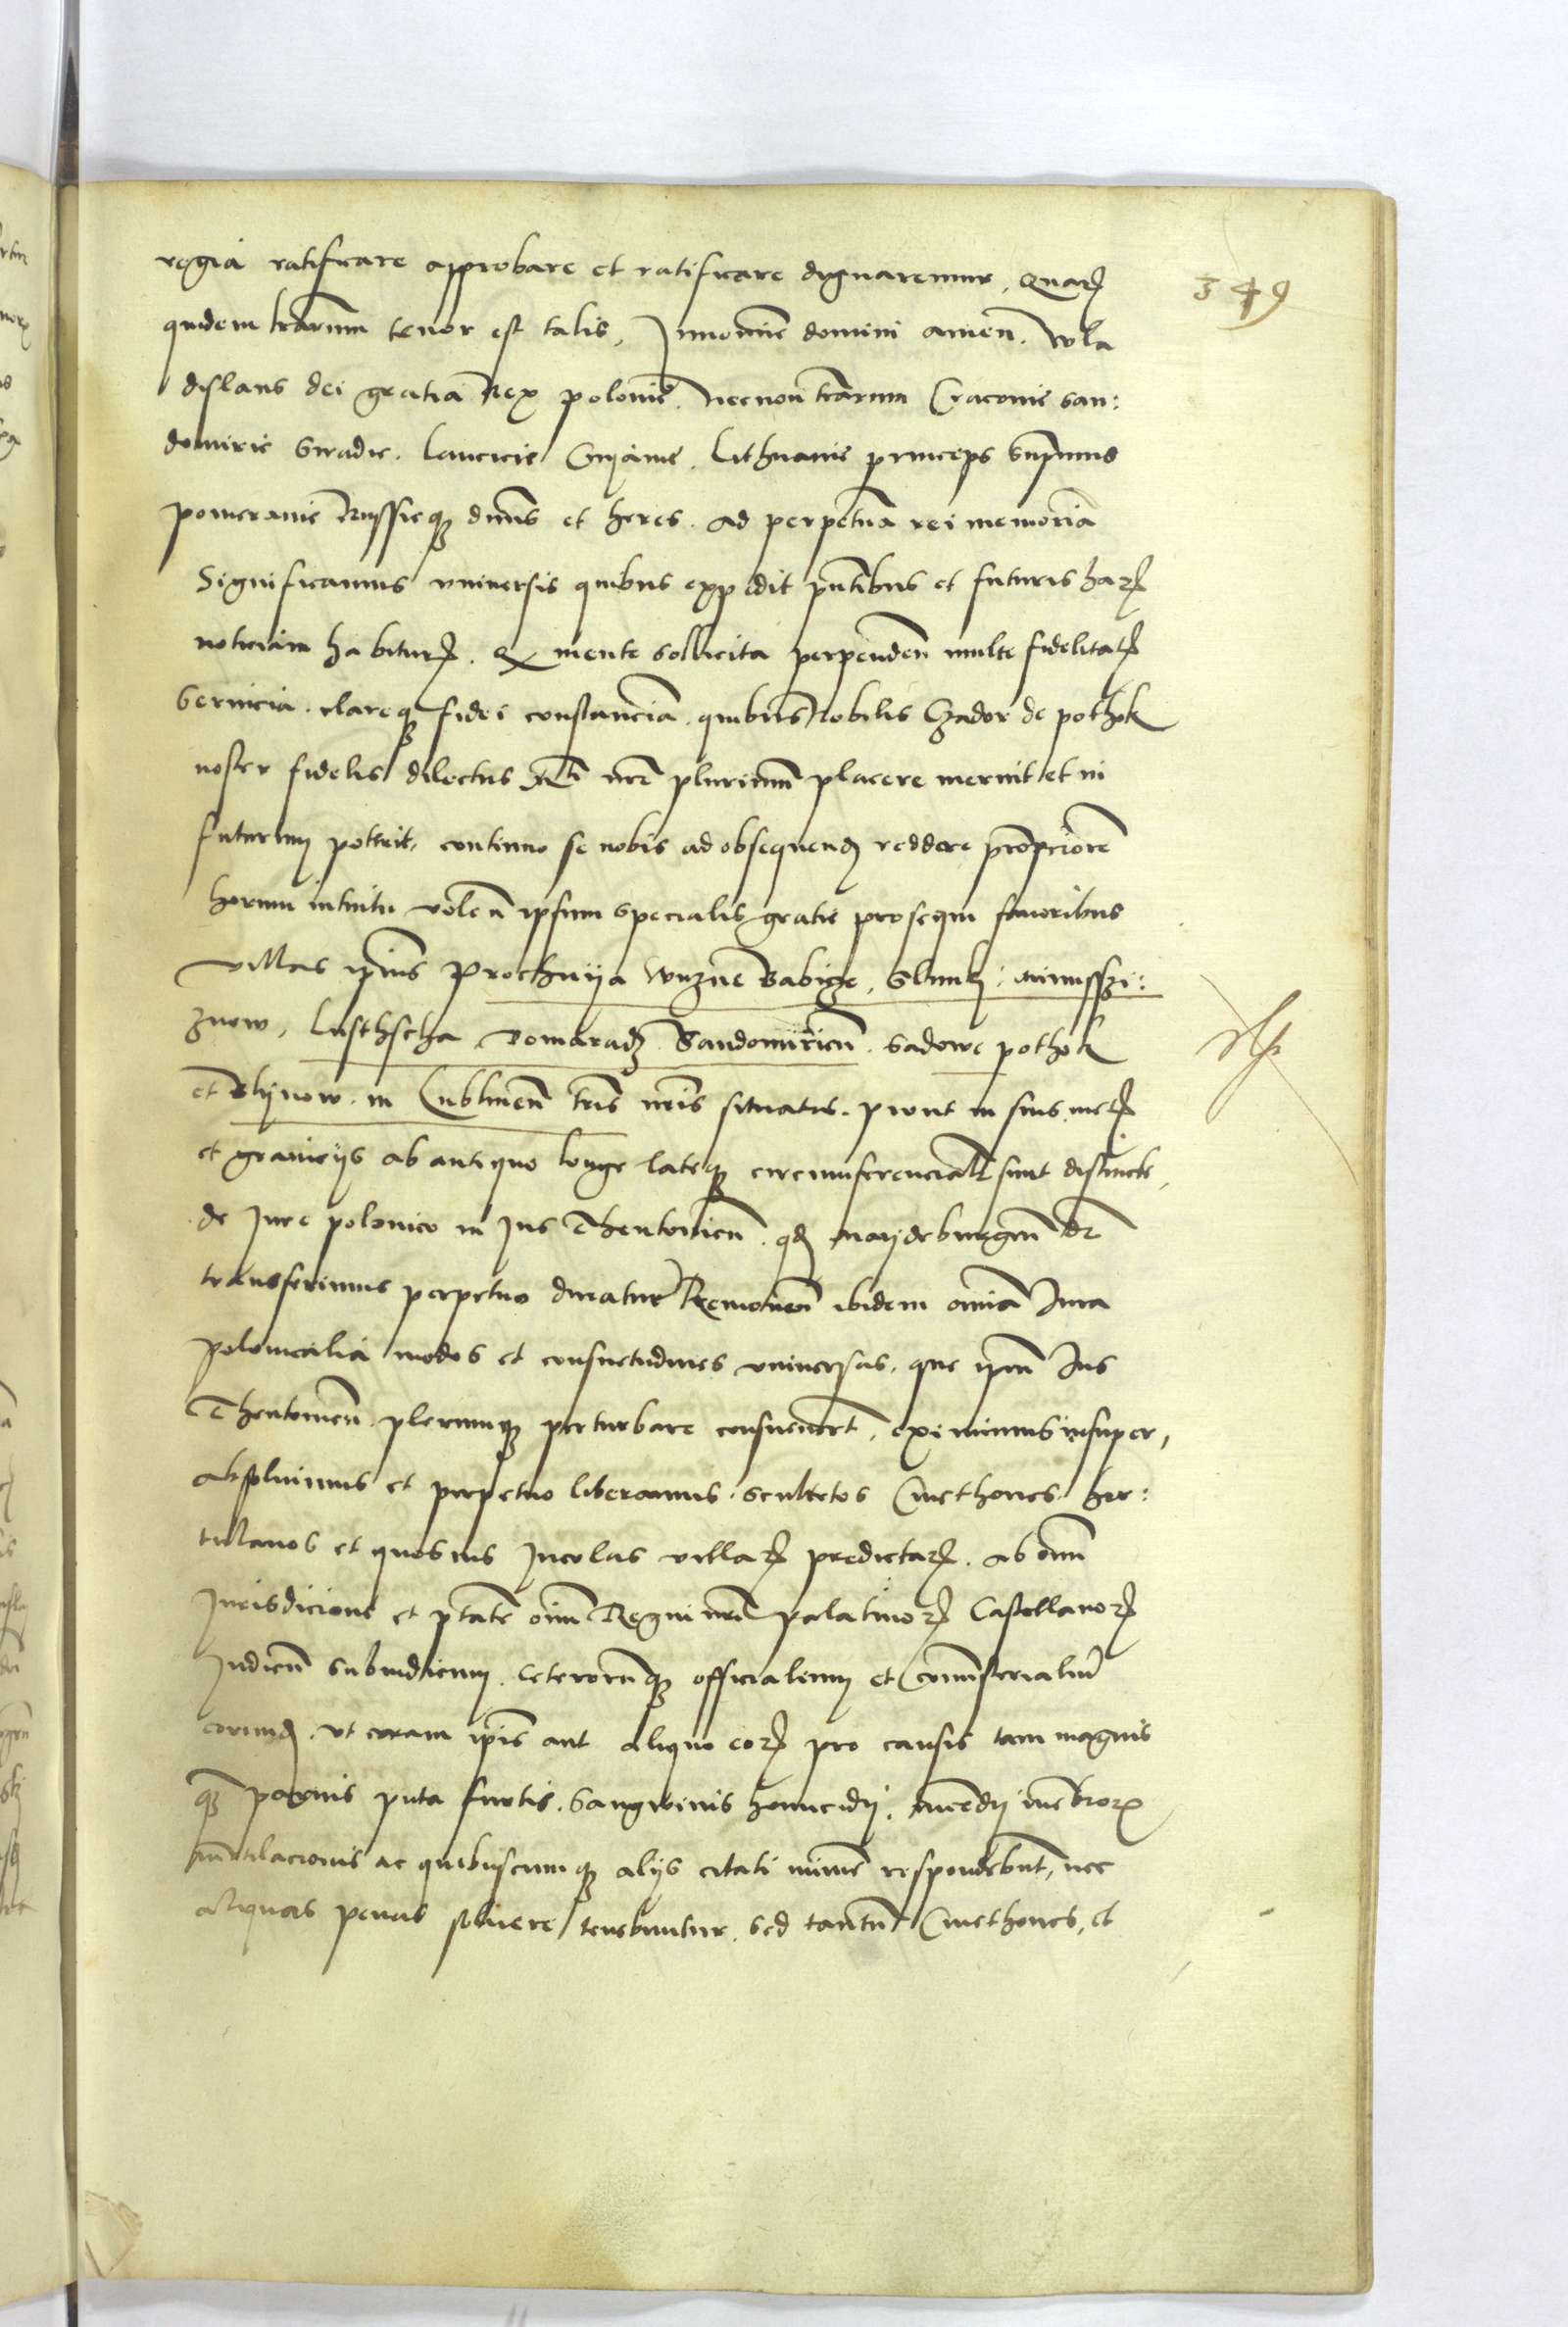 regia ratificare approbare et ratificare dignaremur, Quar
349
quidem trarum tenor est talis, Innomine domini amen. Wla
dislaus dei gratia Rex polonie. Necnon trarum Cracouie san:
domirie Siradie. lancicie Cuyauie. Lithuanie princeps Supremus
pomeranie Russieq dnus et heres. ad perpetuam rei memoriam
Significamus vniuersis quibus expedit pntibus et futuris har
noticiam habitur. Q mente sollicita perpenden multe fidelitat
seruicia. clareq fidei constanciam. quibus Nobilis Czador de pothok
noster fidelis dilectus nre plurimum placere meruit et in
futurum poterit, continuo se nobis ad obsequend reddere promptiorem
horum intuitu volen ipsum specialis gratie prosequi fauoribus
villas ipius Prochnya Wuzne Babicze, Slunk,
znow, lusthscha Domaradz Sandomirien. Sadowe pothok
et Slynow. in Lublinen tris nris situatas. prout in suis met
et graniciis ab antiquo longe lateq circumferencialr sunt distincte,
de Jure polonico in Jus Theutonicum. qd Maydeburgen dr
transferimus perpetuo duratur Remouen ibidem omnia Jura
polonicalia modos et consuetudines vniuersas. que ipm Jus
Theutonicum plerumq perturbare consueuert, eximimus insuper,
absoluimus et perpetuo liberamus. scultetos Cmethones. hor:
tulanos et quosuis Incolas villar predictar. ab omi
Jurisdicione et ptate oim Regni nri palatinor Castellanor
Judicum subiudicum. Ceterorumq officialium et Ministerialium
eorund. vt coram ipis aut aliquo eor pro causis tam magnis
q paruis puta furtis. Sangwinis homicidij. Incendij membror
mutilacionis ac quibuscumq alijs citati minime respondebunt, nec
aliquas penas soluere tenebuntur. sed tantum Cmethones, et